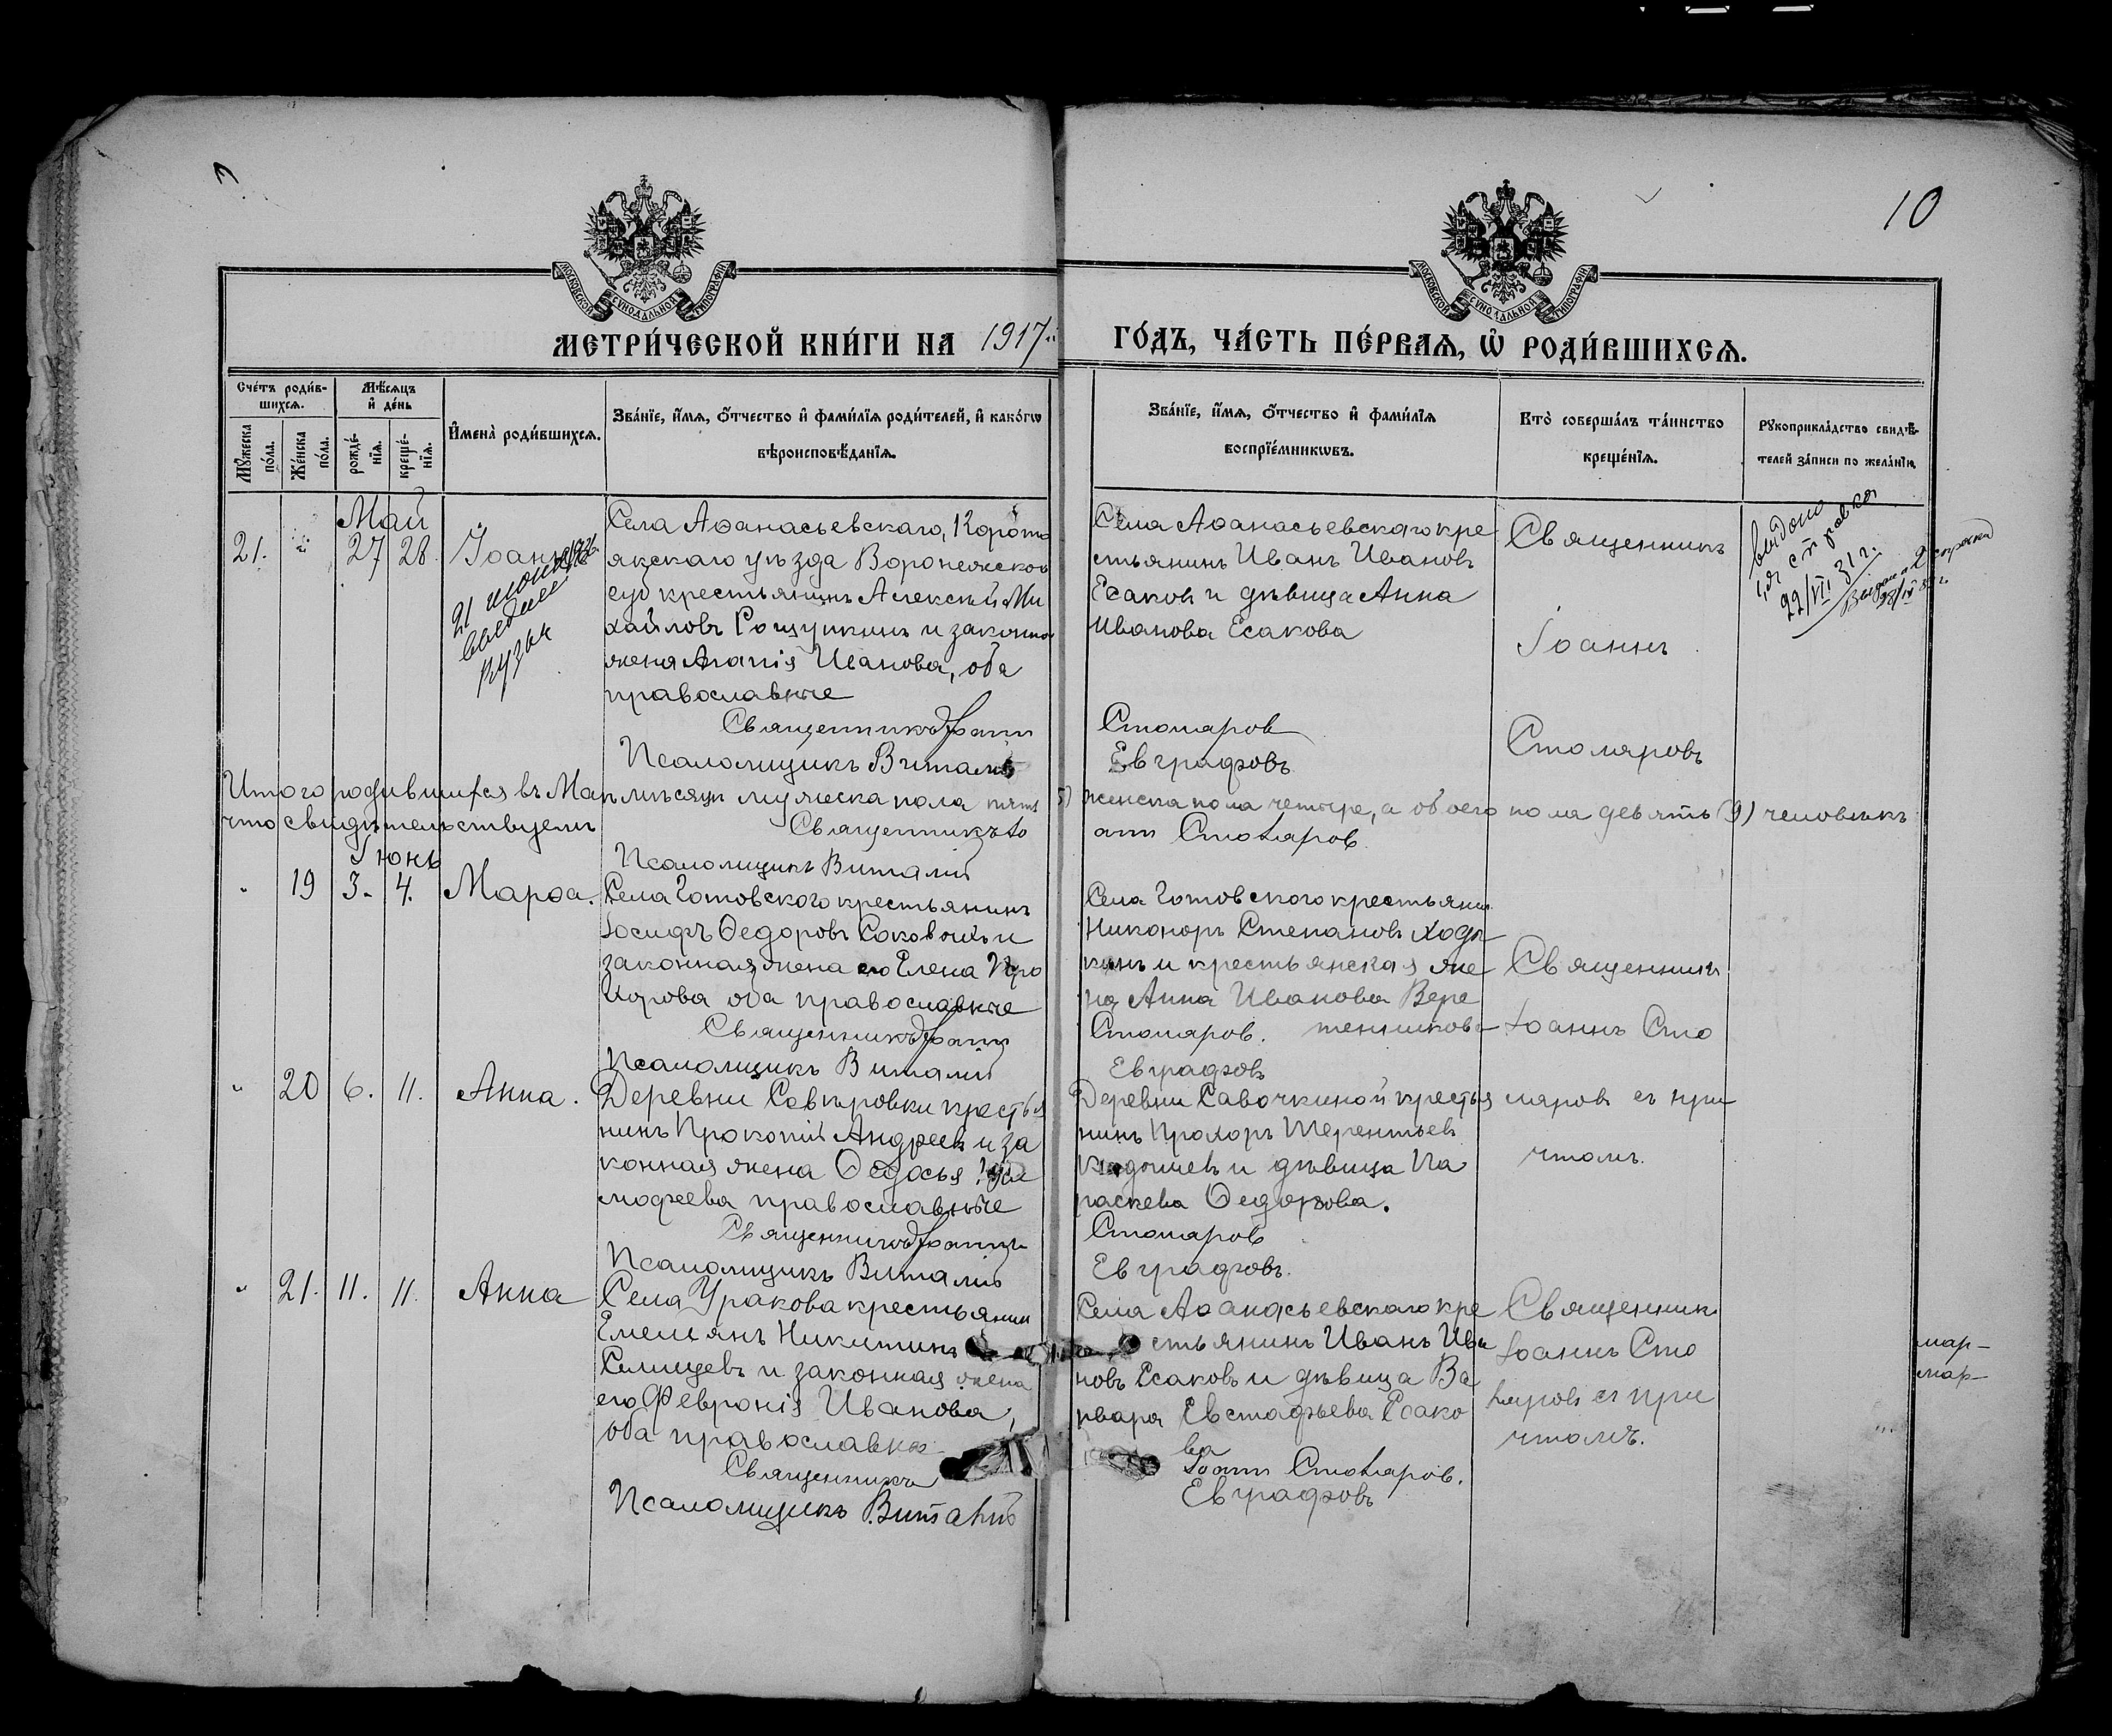 10
МОСКОВСКОЙ СѴНОДАЛЬНОЙ ТИПОГРАФІИ
МОСКОВСКОЙ СѴНОДАЛЬНОЙ ТИПОГРАФІИ
МЕТРИ́ЧЕСКОЙ КНИ́ГИ НА 1917
ГО́ДЪ, ЧА́СТЬ ПЕ́РВАѦ, Ѡ҆ РОДИ́ВШИХСѦ.
Сче́тъ роди́в-
шихсѧ.
Мꙋ́жеска
по́ла.
Же́нска
по́ла.
Мѣ́сѧцъ
и҆ де́нь
рожде́-
нїѧ.
креще́-
нїѧ.
И҆мена̀ роди́вшихсѧ.
Зва́нїе, и҆́мѧ, ѻ҆́тчество и҆ фами́лїѧ роди́телей, и҆ како́гѡ
вѣроисповѣ́данїѧ.
Зва́нїе, и҆́мѧ, ѻ҆́тчество и҆ фами́лїѧ
воспрїе́мникѡвъ.
Кто̀ соверша́лъ та́инство
креще́нїѧ.
Рꙋкоприкла́дство свидѣ́-
телей за́писи по жела́нїю.
Май
21. 27 28.
Іоаннъ
21 июня
Села Аѳанасьевскаго, Корото
якскаго уѣзда Воронежской
губ крестьянинъ Алексѣй Ми
хайловъ Рощупкинъ и законная
жена Агапія Иванова, оба
православные
Священникъ Іоаннъ
Псаломщикъ Виталій
Села Аѳанасьевскаго кре
стьянинъ Иванъ Ивановъ
Есаковъ и дѣвица Анна
Иванова Есакова
Столяров
Евграфовъ
Священникъ
Іоаннъ
Столяровъ
выдана
справка
22/VII 31 г.
Итого родившихся въ Маѣ мѣсяцѣ мужеска пола пять (5) женска пола четыре, а обоего пола девять (9) человѣкъ
что свидѣтельствуемъ
Священникъ Іо
анн Столяров.
Псаломщикъ Виталій
Іюнь
19 3. 4. Марѳа.
Села Готовского крестьянинъ
Іосифъ Ѳедоровъ и
законная жена его Елена Про
хорова оба православные
Священникъ Іоаннъ
Псаломщикъ Виталій
Села Готовского крестьянинъ
Никаноръ Степановъ Ходы
кинъ и крестьянская же
на Анна Иванова Вере
тенникова
Столяров.
Евграфовъ
Священникъ
Іоаннъ Сто
ляровъ съ при
чтомъ.
20 6. 11. Анна.
Деревни крестья
нинъ Прокопій Андреевъ и за
конная жена Ѳедосья Ти
мофеева православные
Священникъ Іоаннъ
Псаломщикъ Виталій
Деревни Савочкиной крестья
нинъ Прохоръ Терентьевъ
и дѣвица Па
раскева Ѳедорова.
Столяров
Евграфовъ.
21. 11. 11. Анна
Села Уракова крестьянин
Емельянъ Никитинъ
Селищевъ и законная жена
его Февронія Иванова,
оба православные
Священникъ
Псаломщикъ Виталій
Села Аѳанасьевскаго кре
стьянинъ Иванъ Ива
новъ Есаковъ и дѣвица Ва
рвара Евстафьева Есако
ва
Іоанн Столяров.
Евграфовъ
Священник
Іоаннъ Сто
ляровъ съ при
чтомъ.